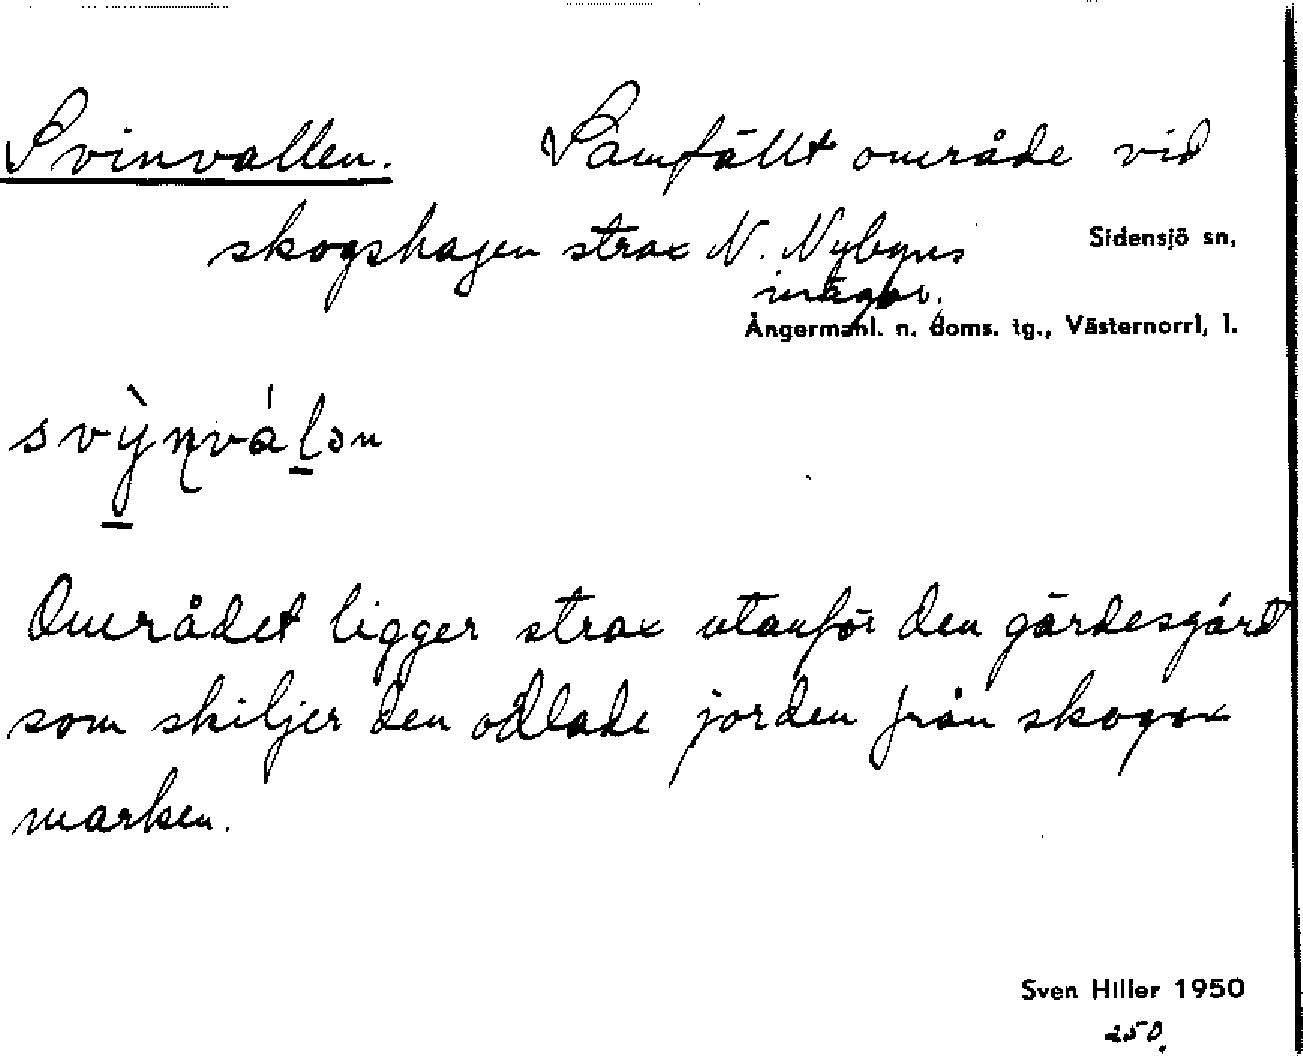 Svinvallen. Samfällt område vid
skogshagen strax N. Nybyns
Sidensjö sn,
inägor.
Ångermanl. n. doms. tg., Västernorrl, l.
Området ligger strax utanför den gärdesgård
som skiljer den odlade jorden från skogs-
marken.
Sven Hiller 1950
250.